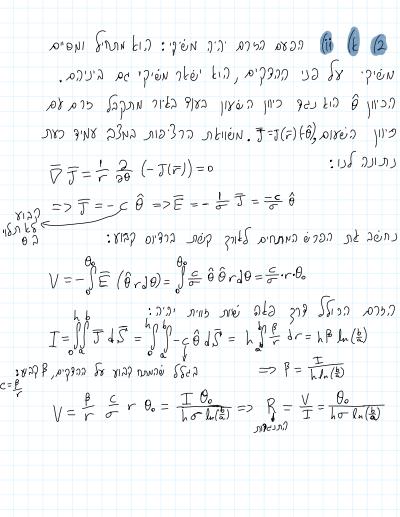 2) א) ii) הפעם הזרם יהיה משיקי: הוא מתחיל ומסיים
משיקי על פני ההדקים, הוא ישאר משיקי גם ביניהם.
הכיוון θ̂ הוא נגד כיוון השעון בעוד באיור מתקבל זרם עם
כיוון השעון, J̄=J(r̄)(-θ̂). משוואת הרציפות במצב עמיד כעת
נתונה לנו:
∇̄ J̄ = 1/r ∂/∂θ (-J(r̄)) = 0
=> J̄ = -c θ̂ => Ē = -1/σ J̄ = -c/σ θ̂
קבוע לא תלוי ב θ
נחשב את הפרש המתחים לאורך קשת ברדיוס קבוע:
V = -∫₀^θ₀ Ē (θ̂ r dθ) = ∫₀^θ₀ c/σ θ̂ θ̂ r dθ = c/σ · r · θ₀
הזרם הכולל דרך פאה שוות זווית יהיה:
I = ∫₀^h ∫ₐ^b J̄ dS̄ = ∫₀^h ∫ₐ^b -c θ̂ dS̄ = h ∫ₐ^b β/r dr = h β ln(b/a)
בגלל שהמתח קבוע על ההדקים, β קבוע: c = β/r => β = I/(h ln(b/a))
V = β/r c/σ r θ₀ = I θ₀/(h σ ln(b/a)) => R = V/I = θ₀/(h σ ln(b/a))
התנגדות